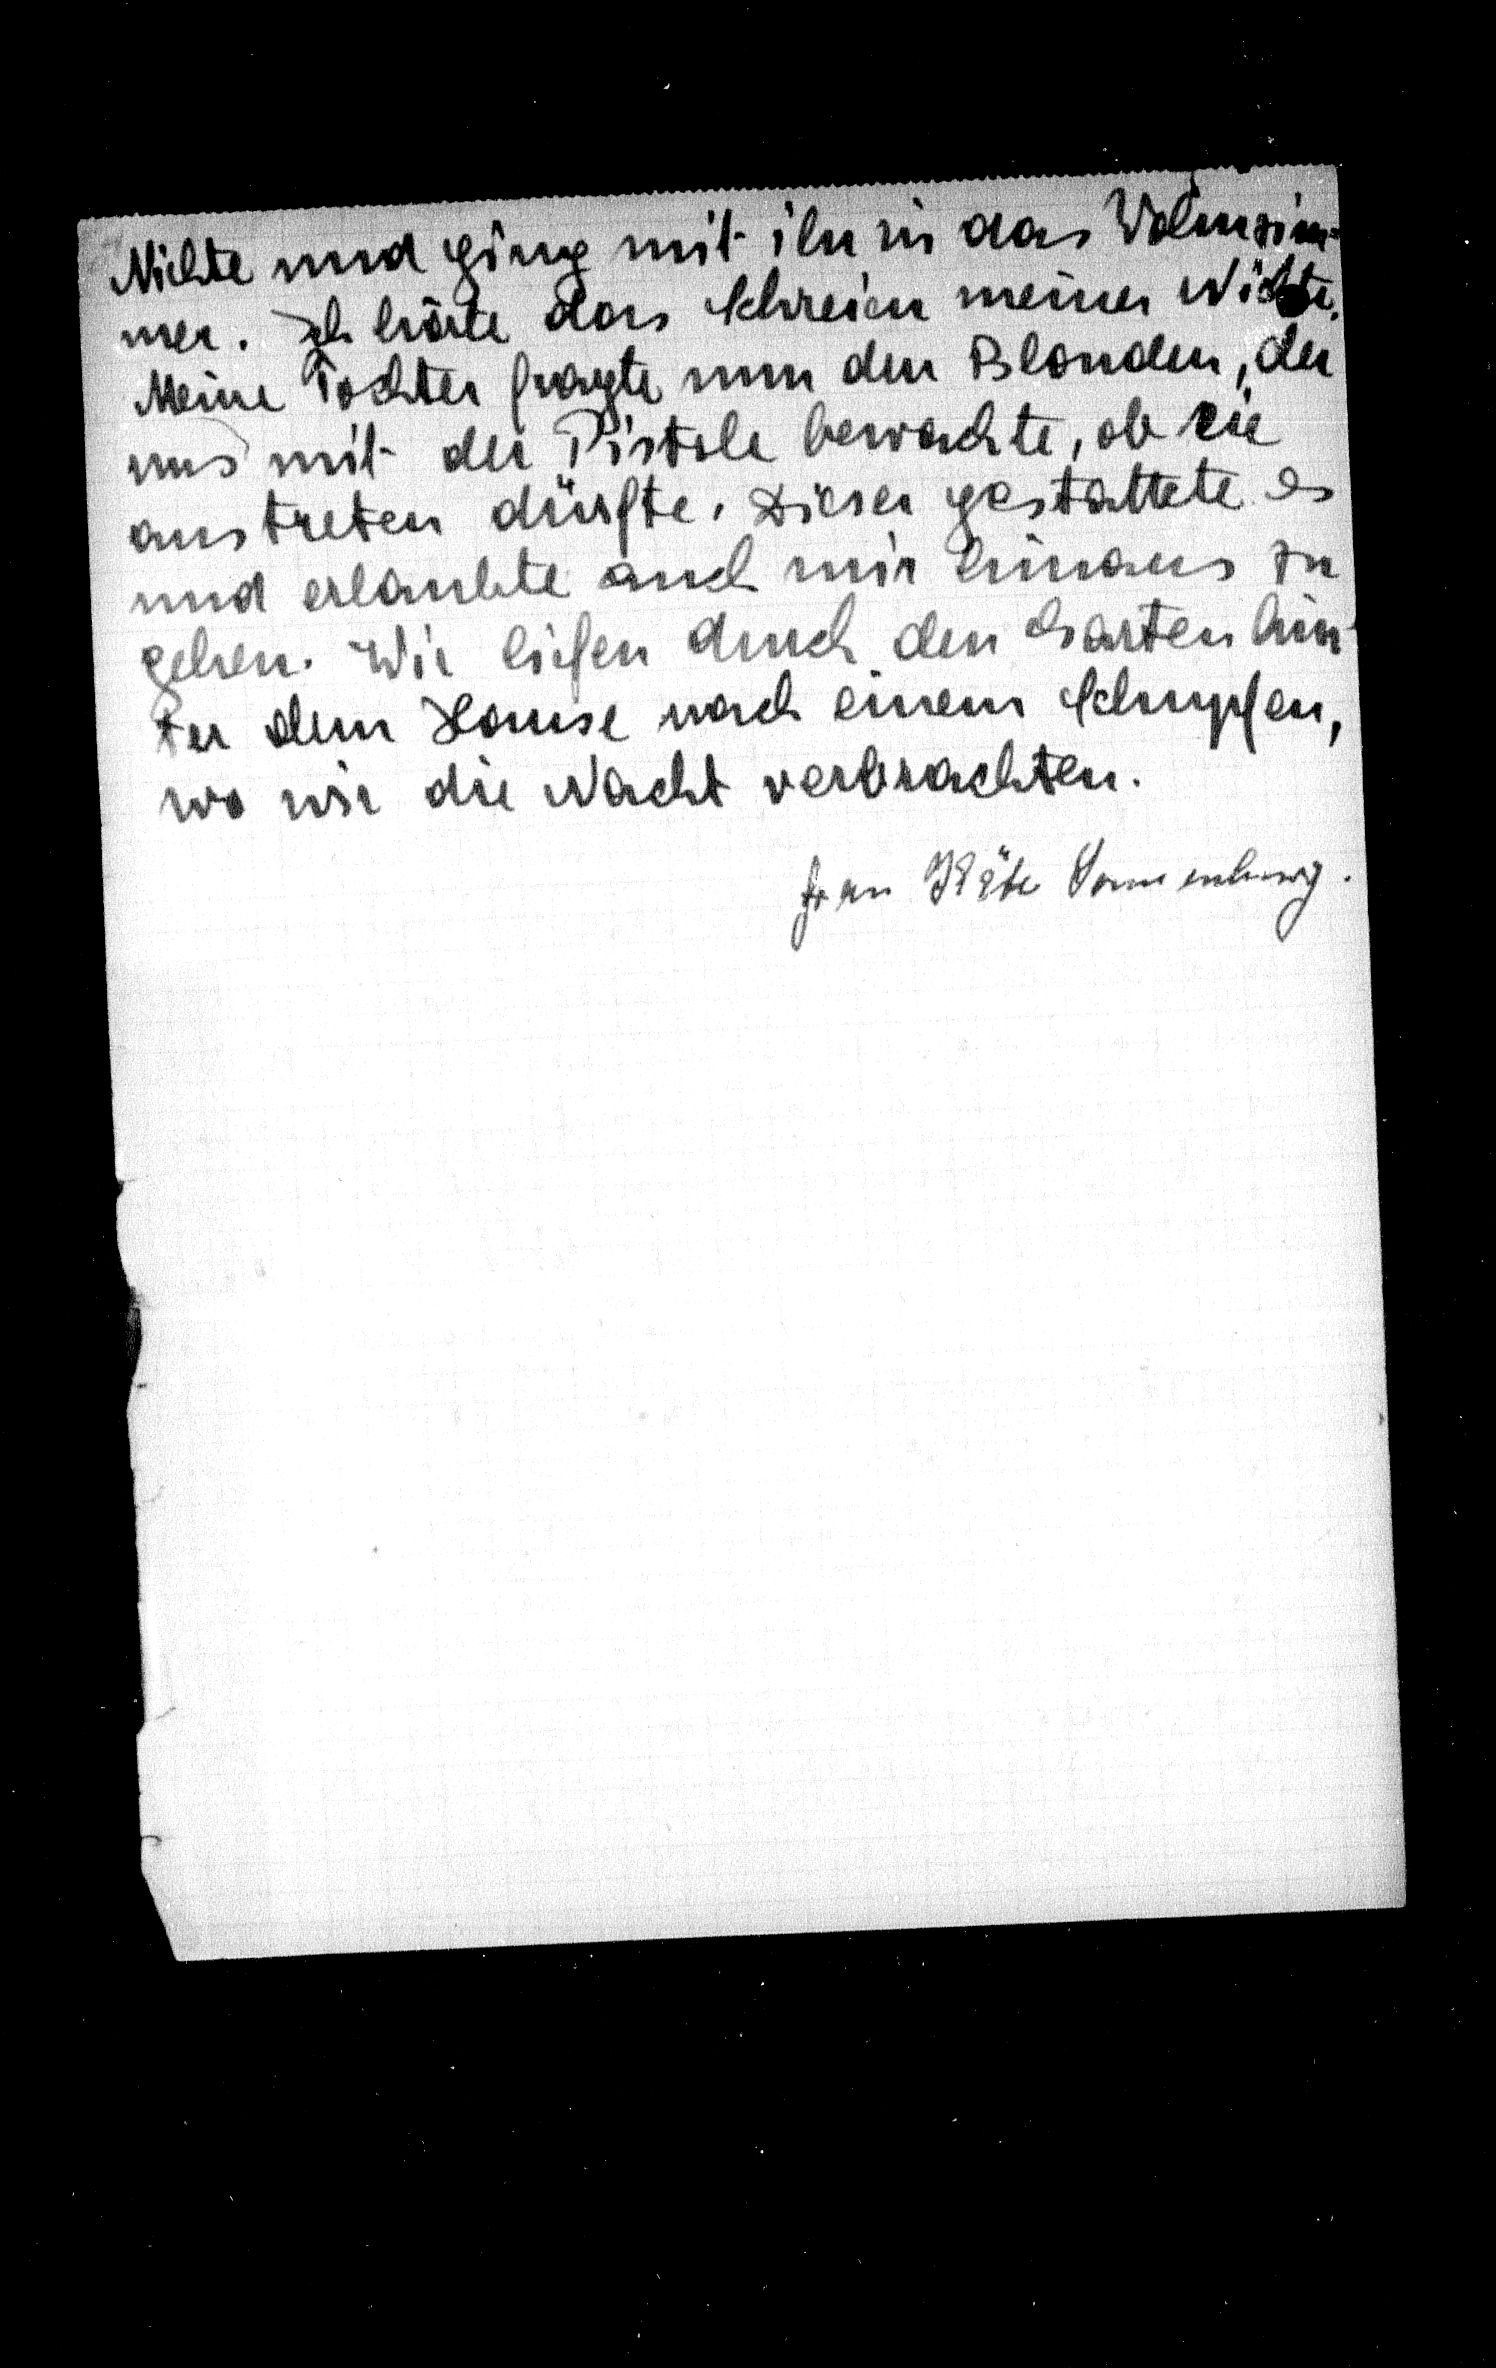 Nichte und ging mit ihr in das Wohnzim=
mer. Ich hörte das Schreien meiner Nichte.
Meine Tochter fragte nun den Blonden, der
uns mit der Pistole bewachte, ob sie
austreten dürfte. Dieser gestattete es
und erlaubte auch mir hinaus zu
gehen. Wir liefen durch den Garten hin-
ter dem Hause nach einem Schupfen,
wo wir die Nacht verbrachten.
Frau Käte Sonnenburg.